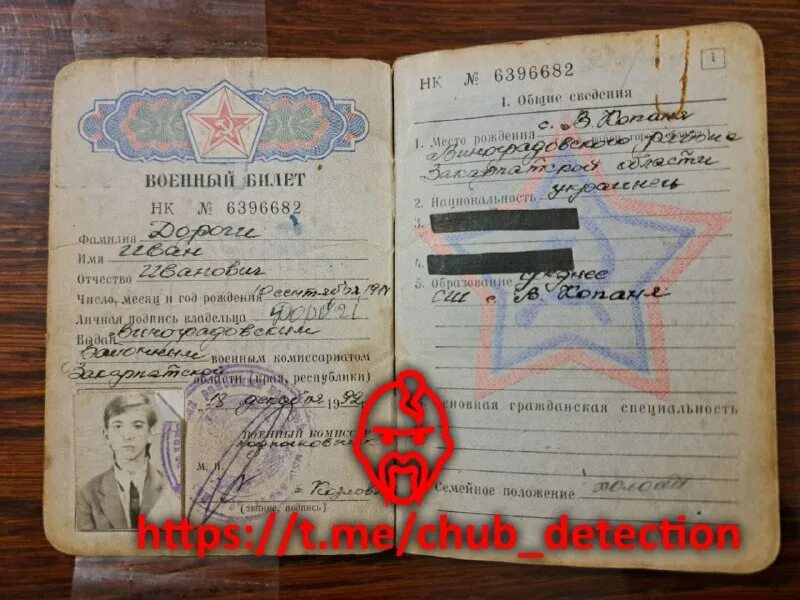 ВОЕННЫЙ БИЛЕТ
НК № 6396682
Фамилия Дороги
Имя Иван
Отчество Иванович
Число, месяц и год рождения 10 сентября
Личная подпись владельца Дороги
Выдан Виноградовским
военным комиссариатом
Закарпатской области (края, республики)
18 декабря 1992
ВОЕННЫЙ КОМИССАР
подполковник
М. П.
Козлов
(звание, подпись)
НК № 6396682
1
I. Общие сведения
1. Место рождения с. В Копаня
Виноградовского района
Закарпатской области
2. Национальность украинець
3.
4.
5. Образование среднее
СШ с. В. Копаня
основная гражданская специальность
Семейное положение холост
https://t.me/chub_detection